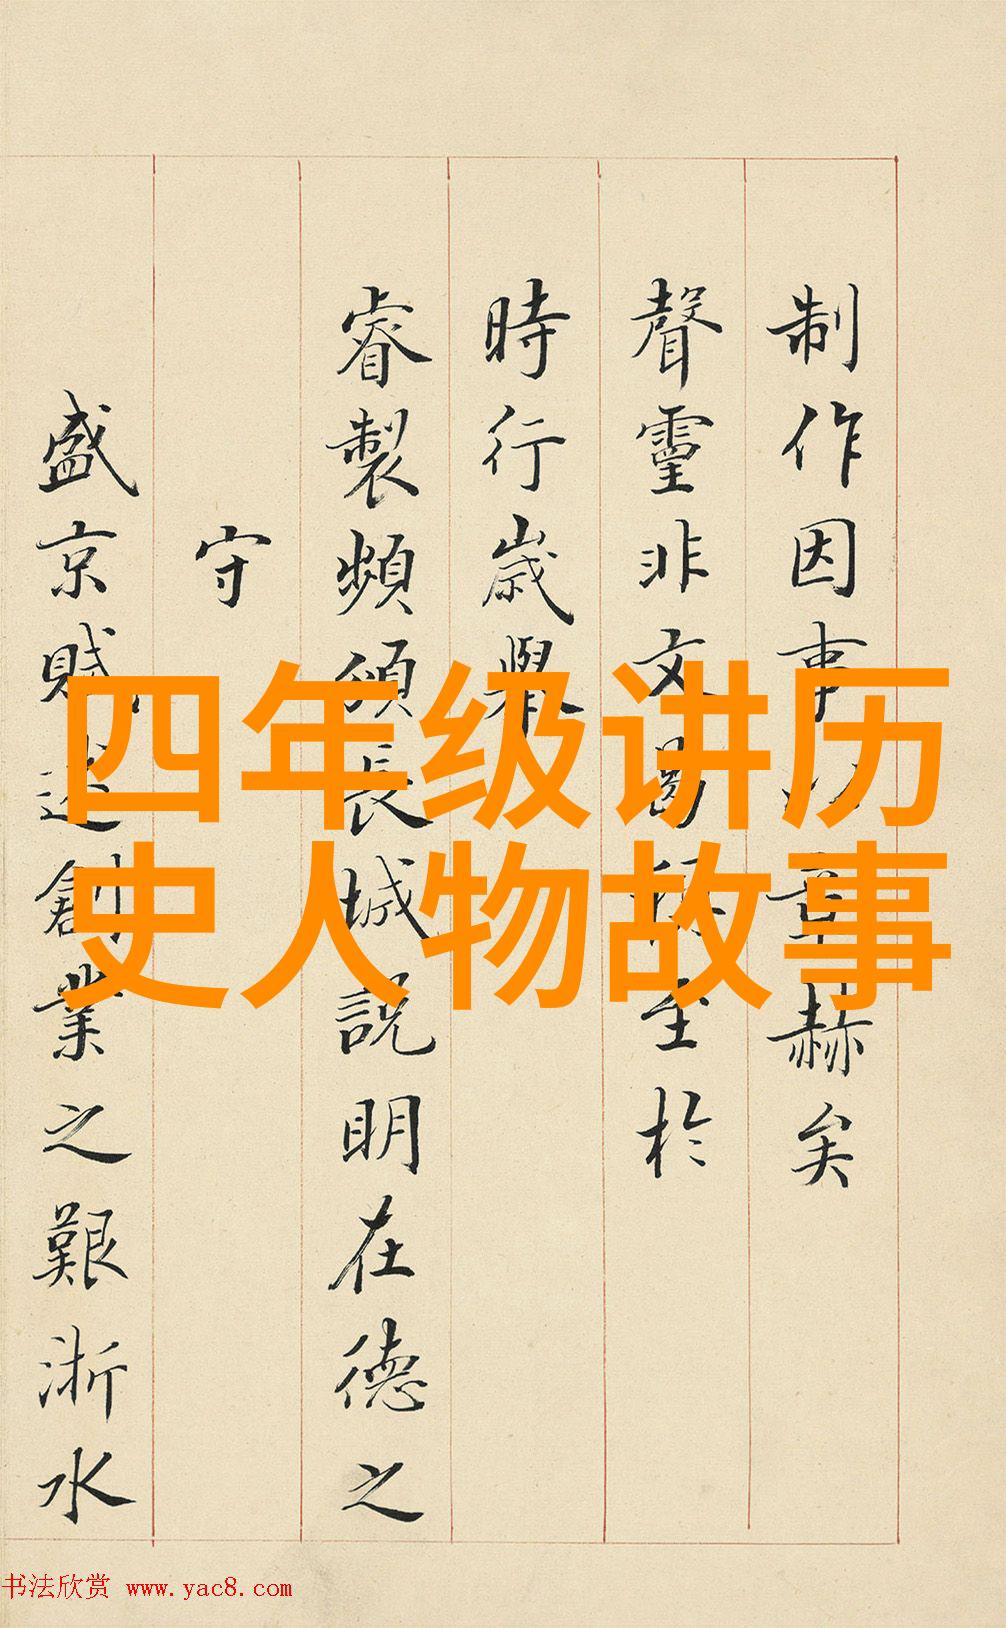 制作因事章赫矣
聲靈非文曷至於
時行歲舉
睿製頻頒長城説明在德之
守
盛京賦述創業之艱浙水
四年级讲历
史人物故事
书法欣赏 www.yac8.com